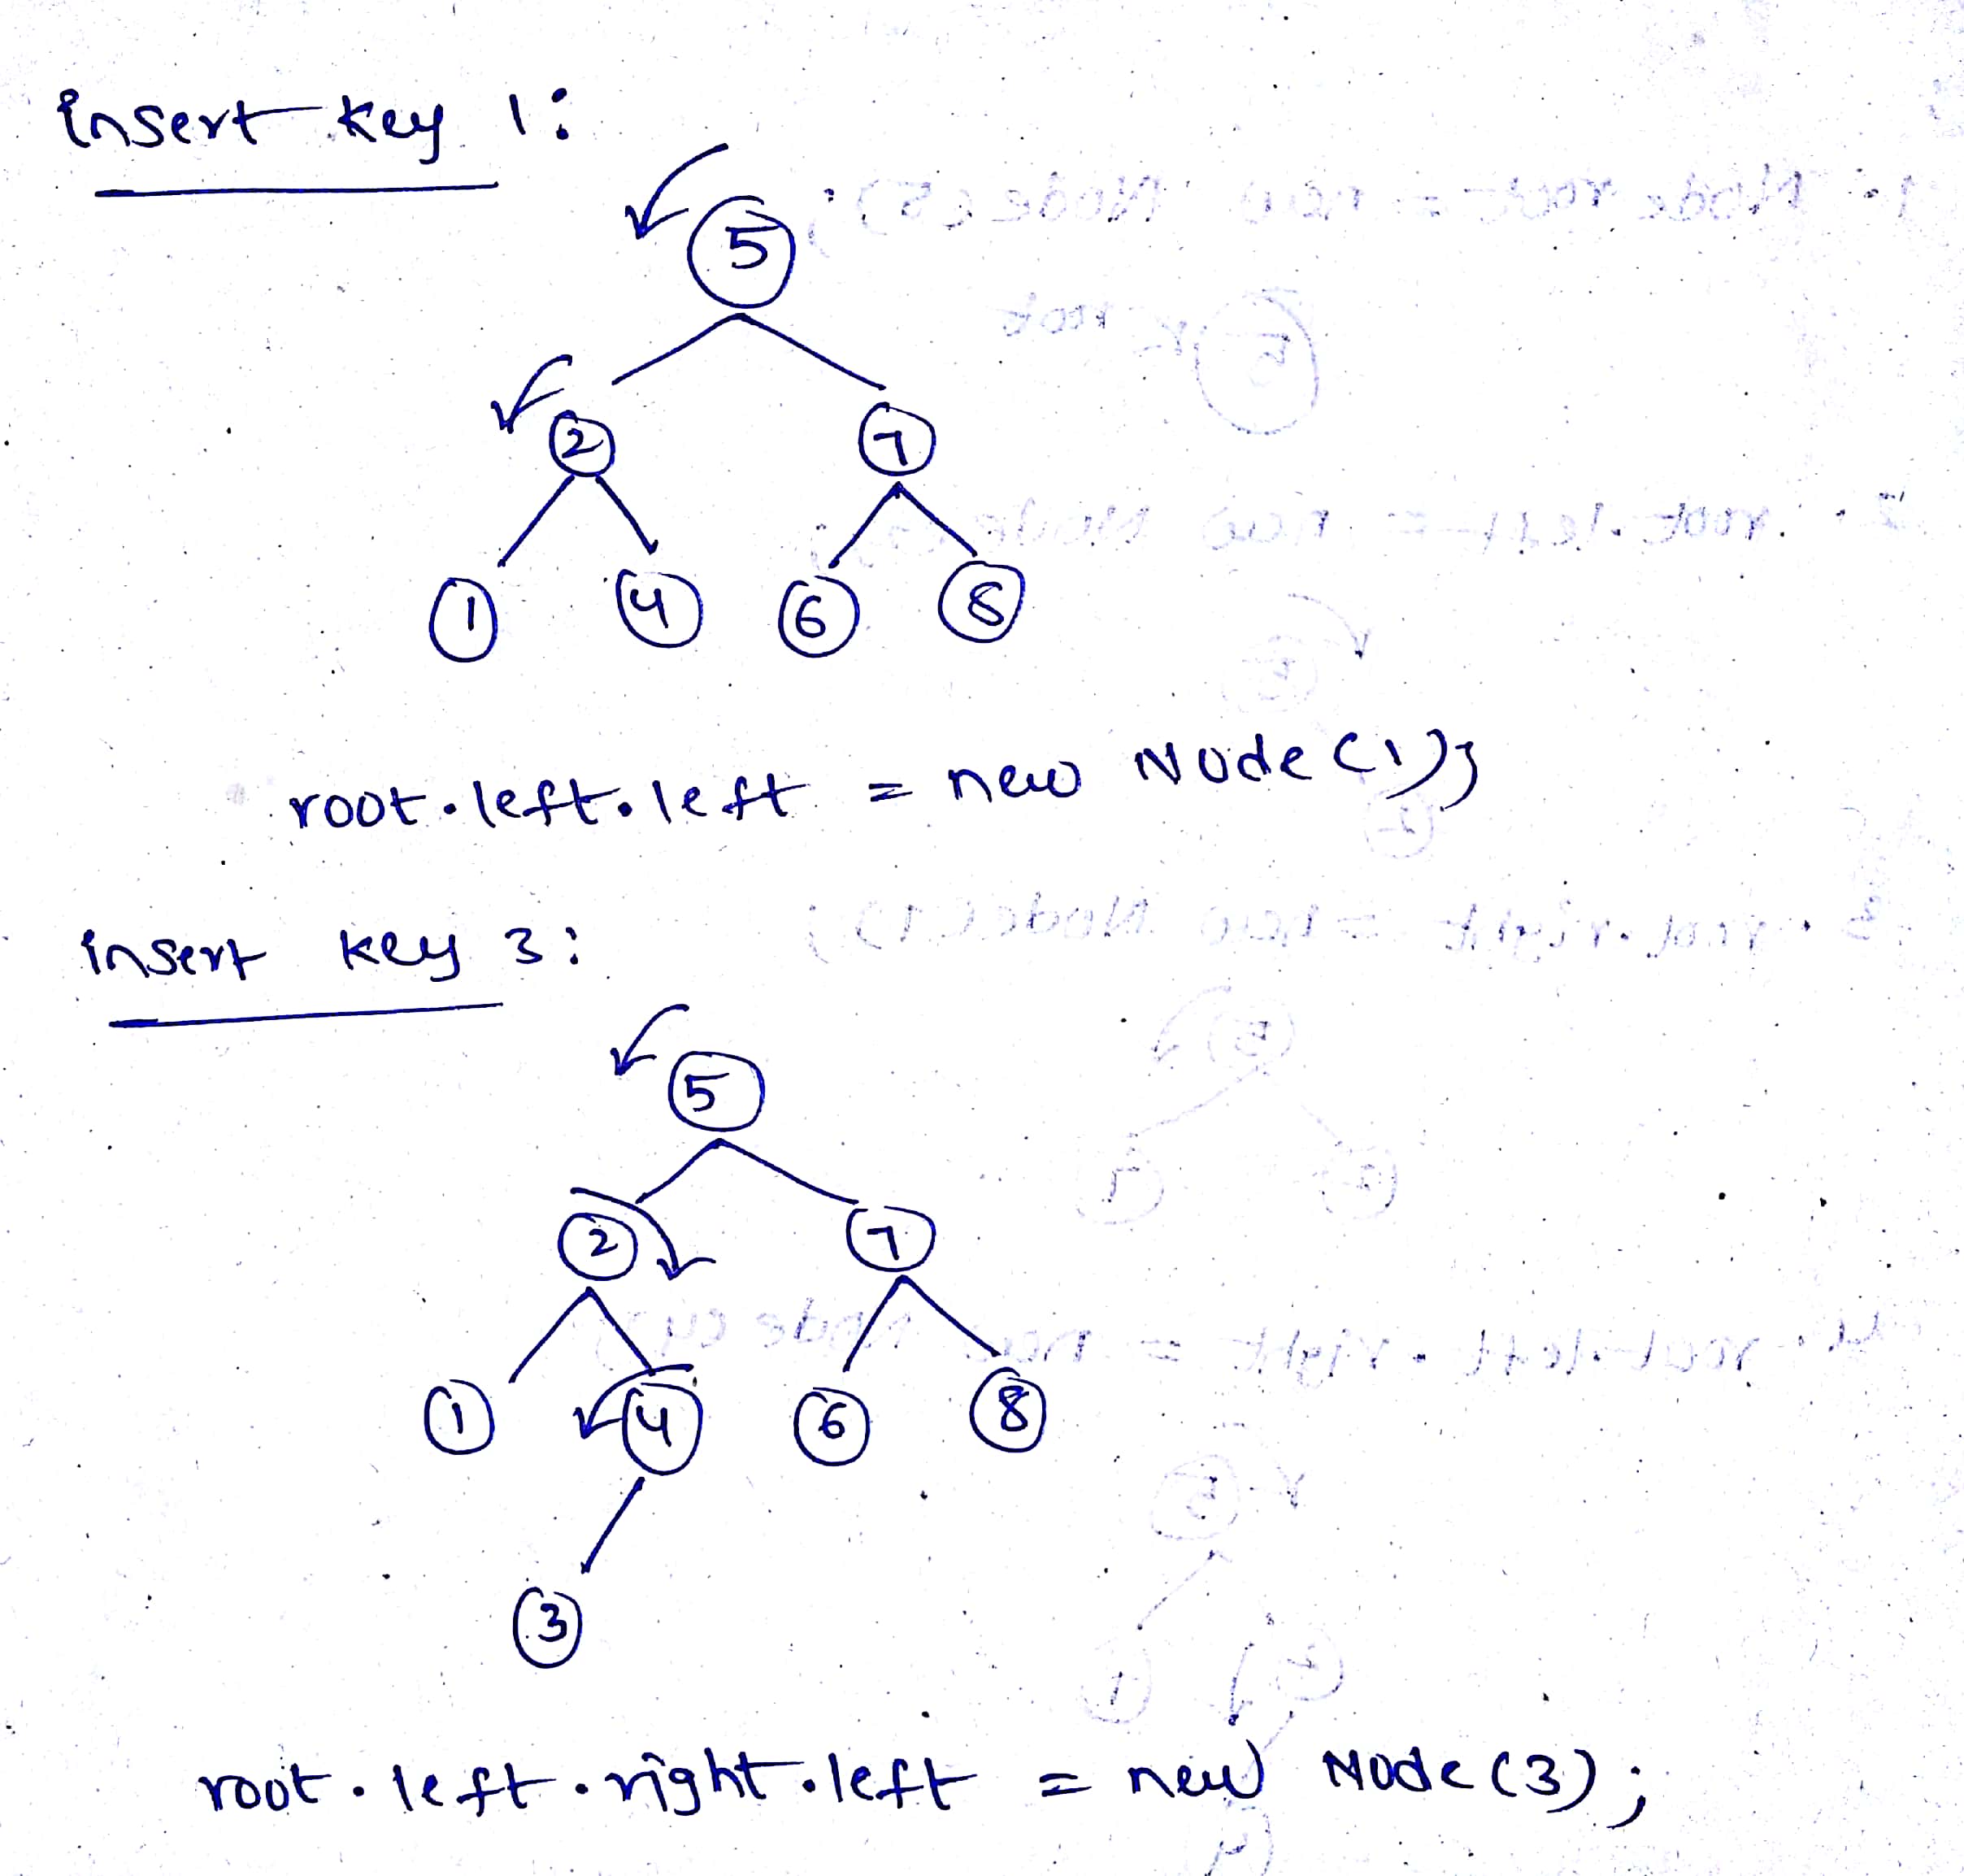 insert key 1:
5
2 7
1 4 6 8
root.left.left = new Node(1);
insert key 3:
5
2 7
1 4 6 8
3
root.left.right.left = new Node(3);